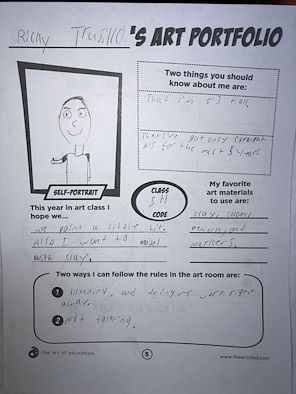 Ricky Trujillo 'S ART PORTFOLIO
Two things you should
know about me are:
That I'm 5'3 tall,
got only straight
A's for the past 5 years
SELF-PORTRAIT
CLASS
5H
CODE
My favorite
art materials
to use are:
clay, colored
pencils, and
markers.
This year in art class I
hope we...
use paint a little bit.
Also I want to model
with clay.
Two ways I can follow the rules in the art room are:
1 listening, and doing work right
away.
2 Not talking.
the art of education
5
www.theartofed.com